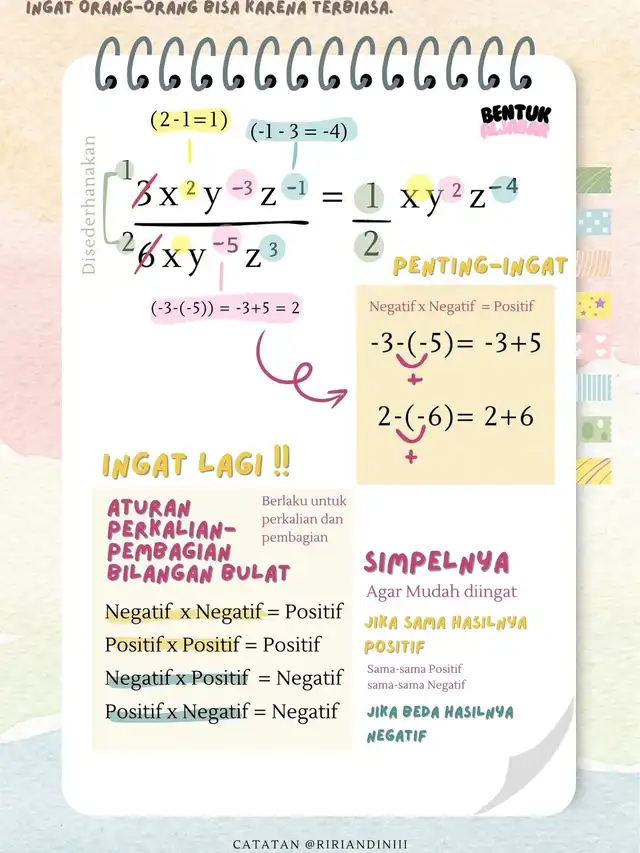 INGAT ORANG-ORANG BISA KARENA TERBIASA.
(2-1=1)
(-1 - 3 = -4)
BENTUK
ALJABAR
Disederhanakan
1 3x² y⁻³ z⁻¹ = 1 xy² z⁻⁴
2 6xy⁻⁵ z³ 2
(-3-(-5)) = -3+5 = 2
PENTING-INGAT
Negatif x Negatif = Positif
-3-(-5)= -3+5
+
2-(-6)= 2+6
+
INGAT LAGI !!
ATURAN
PERKALIAN-
PEMBAGIAN
BILANGAN BULAT
Berlaku untuk
perkalian dan
pembagian
Negatif x Negatif = Positif
Positif x Positif = Positif
Negatif x Positif = Negatif
Positif x Negatif = Negatif
SIMPELNYA
Agar Mudah diingat
JIKA SAMA HASILNYA
POSITIF
Sama-sama Positif
sama-sama Negatif
JIKA BEDA HASILNYA
NEGATIF
CATATAN @RIRIANDINIII